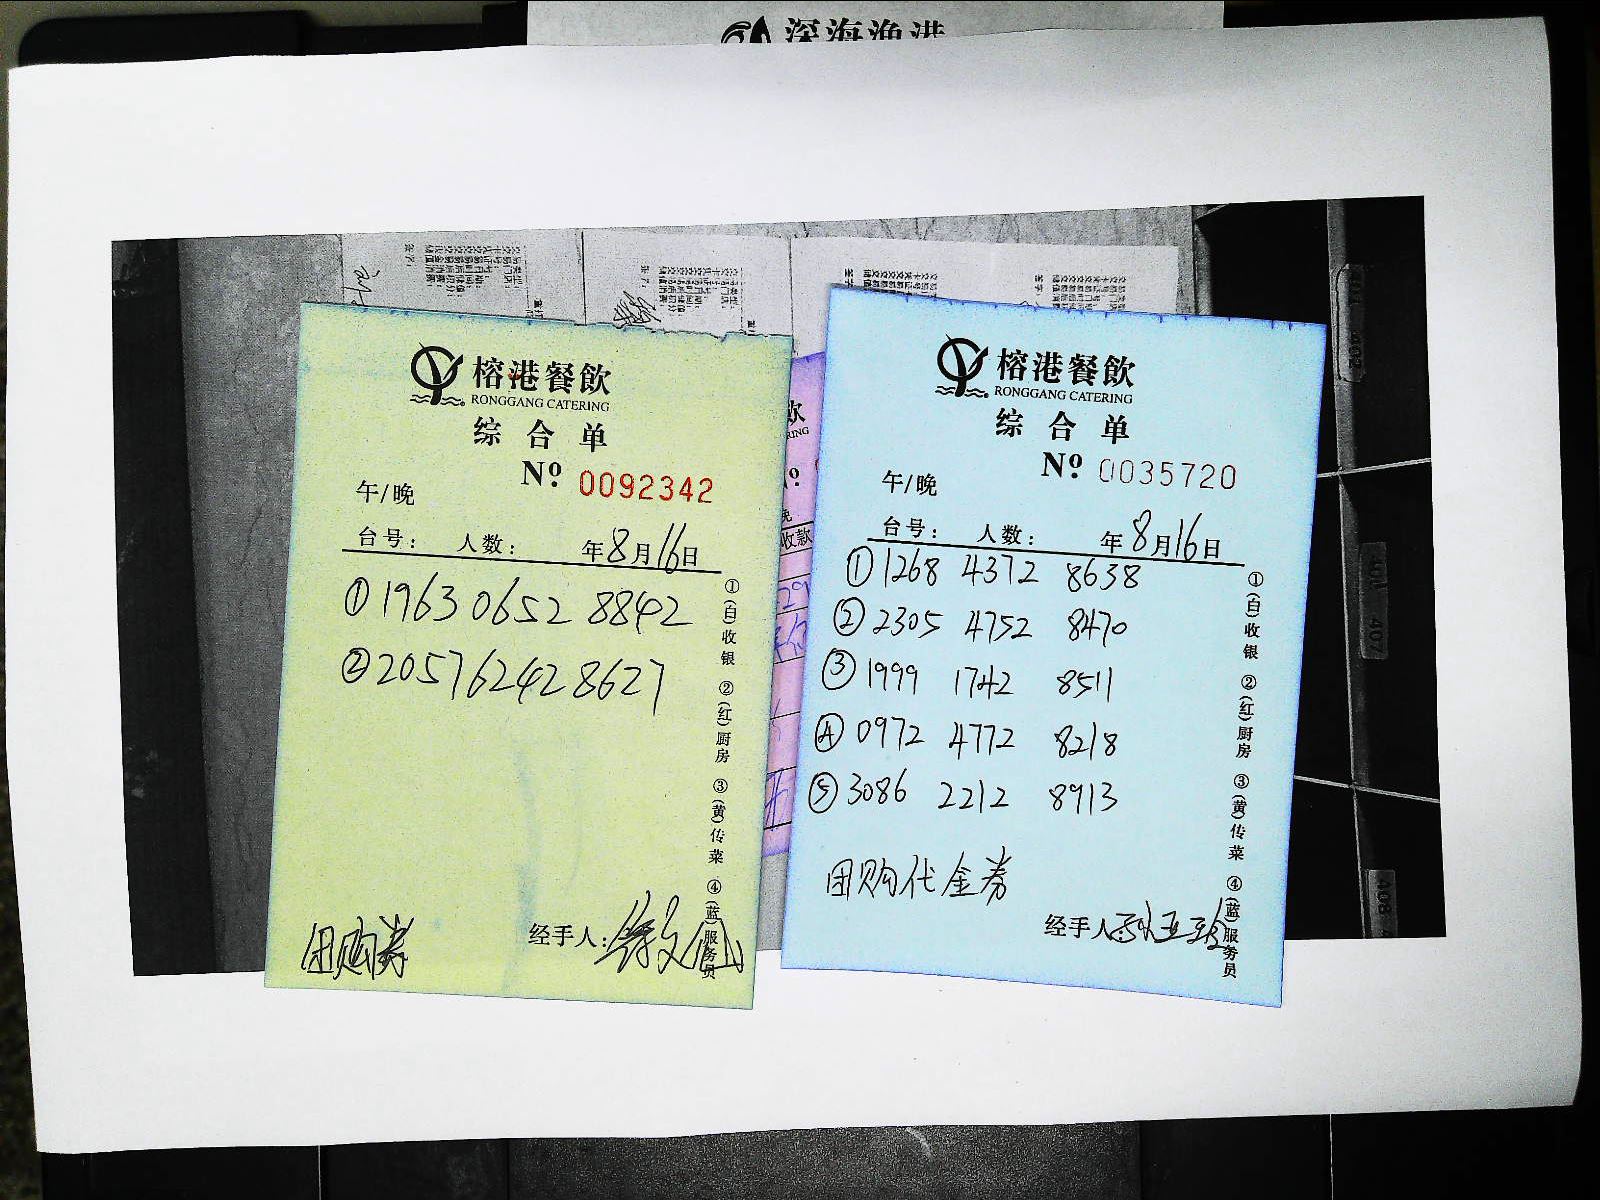 深海渔港
榕港餐飲
RONGGANG CATERING
综合单
Nº 0092342
午/晚
台号： 人数： 年8月16日
①1963 0652 8842
②2057 6242 8627
①(白)收银 ②(红)厨房 ③(黄)传菜 ④(蓝)服务员
团购券
经手人：
榕港餐飲
RONGGANG CATERING
综合单
Nº 0035720
午/晚
台号： 人数： 年8月16日
①1268 4372 8638
②2305 4752 8470
③1999 1742 8511
④0972 4772 8218
⑤3086 2212 8913
①(白)收银 ②(红)厨房 ③(黄)传菜 ④(蓝)服务员
团购代金券
经手人：
收款
407